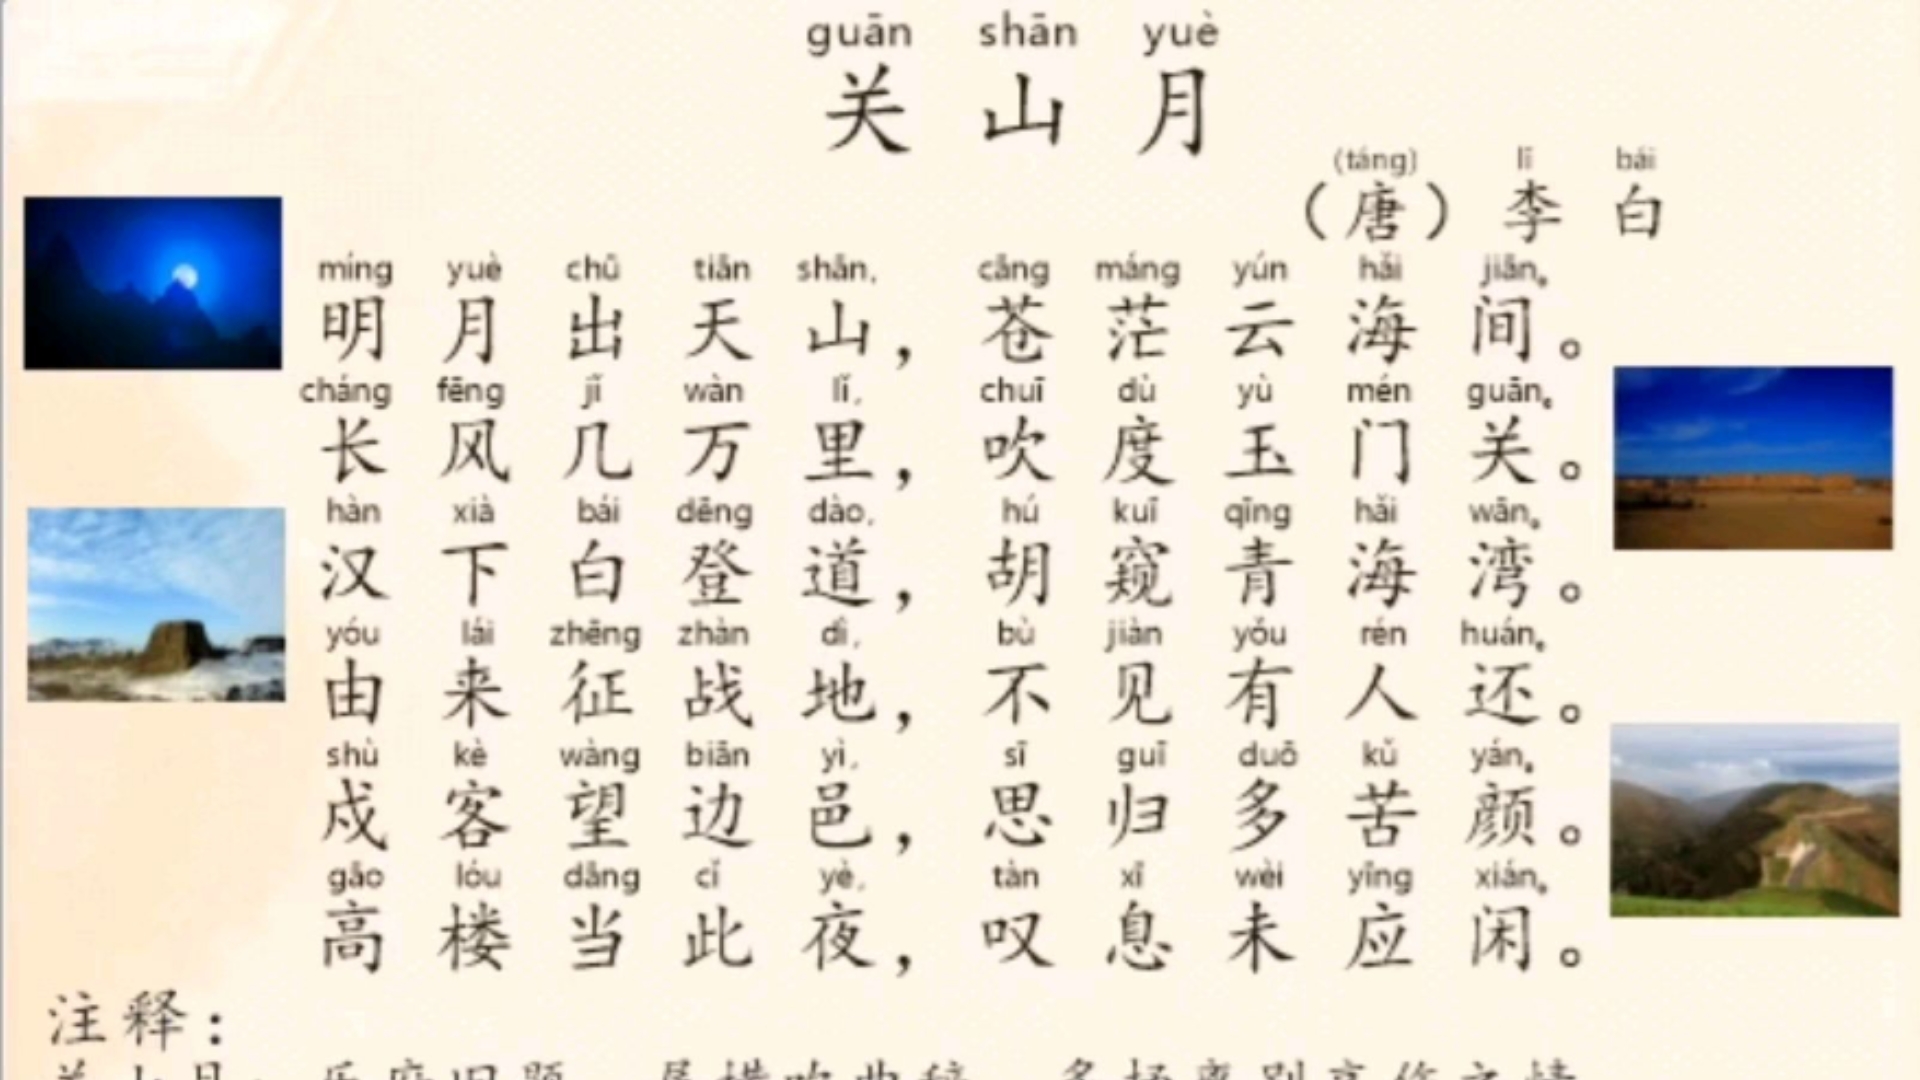 guān shān yuè
关山月
(táng) lǐ bái
（唐）李白
míng yuè chū tiān shān, cāng máng yún hǎi jiān。
明月出天山，苍茫云海间。
cháng fēng jǐ wàn lǐ, chuī dù yù mén guān。
长风几万里，吹度玉门关。
hàn xià bái dēng dào, hú kuī qīng hǎi wān。
汉下白登道，胡窥青海湾。
yóu lái zhēng zhàn dì, bù jiàn yǒu rén huán。
由来征战地，不见有人还。
shù kè wàng biān yì, sī guī duō kǔ yán。
戍客望边邑，思归多苦颜。
gāo lóu dāng cǐ yè, tàn xī wèi yīng xián。
高楼当此夜，叹息未应闲。
注释：